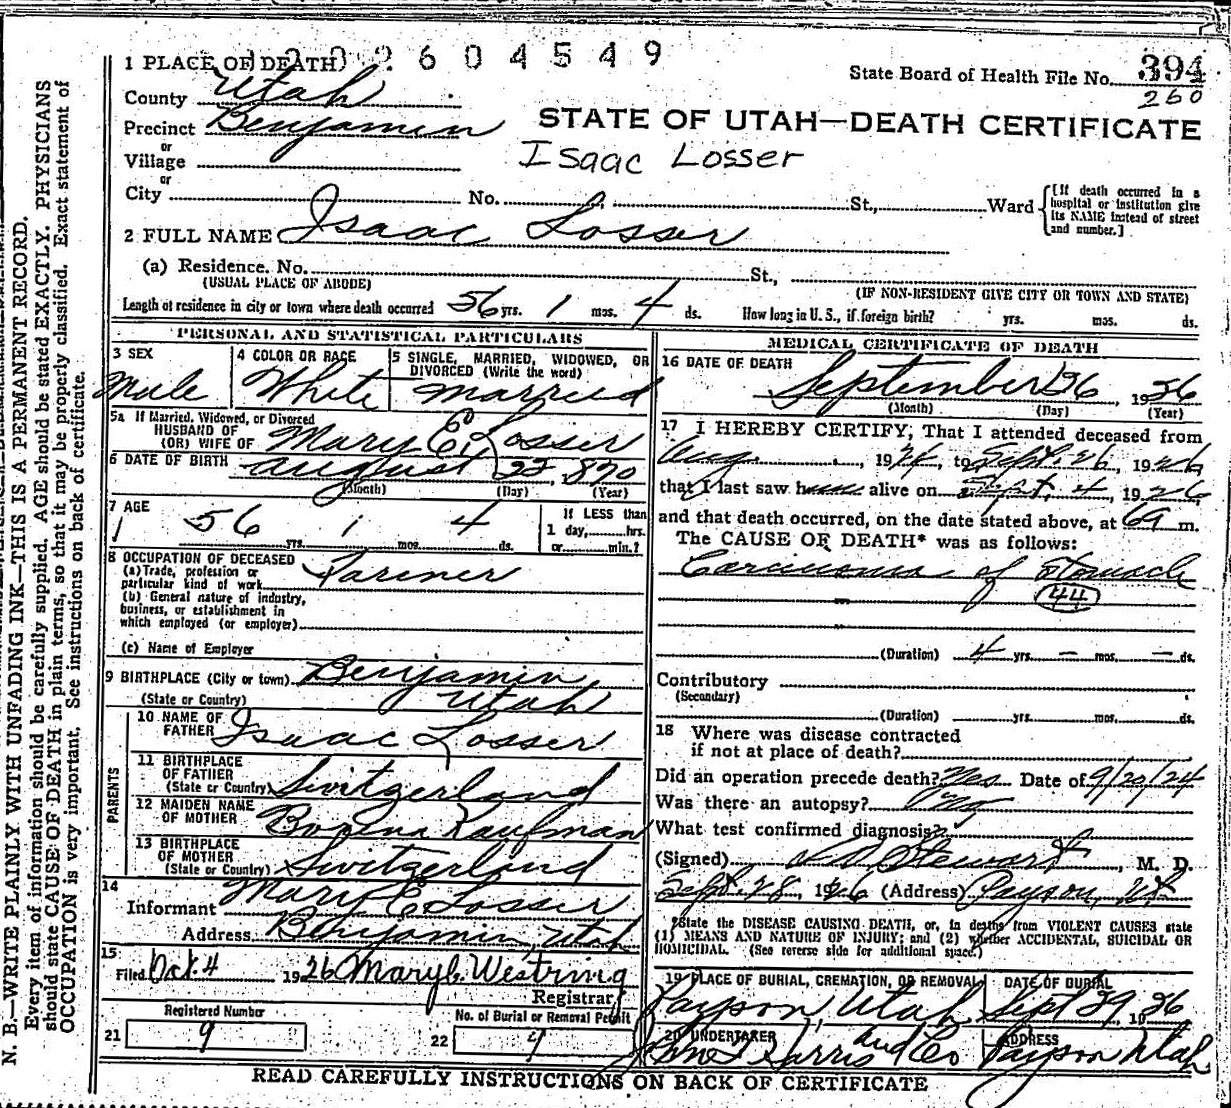 1 PLACE OF DEATH 2604549
State Board of Health File No. 394
260
County Utah
Precinct Benjamin
STATE OF UTAH—DEATH CERTIFICATE
or
Village
Isaac Losser
or
City No. St., Ward
[If death occurred in a
hospital or institution give
its NAME instead of street
and number.]
2 FULL NAME Isaac Losser
(a) Residence. No. St.,
(USUAL PLACE OF ABODE) (IF NON-RESIDENT GIVE CITY OR TOWN AND STATE)
Length of residence in city or town where death occurred 56 yrs. 1 mos. 4 ds. How long in U. S., if foreign birth? yrs. mos. ds.
PERSONAL AND STATISTICAL PARTICULARS
3 SEX
Male
4 COLOR OR RACE
White
5 SINGLE, MARRIED, WIDOWED, OR
DIVORCED (Write the word)
Married
5a If Married, Widowed, or Divorced
HUSBAND OF
(OR) WIFE OF Mary E. Losser
6 DATE OF BIRTH August 22, 1870
(Month) (Day) (Year)
7 AGE
56 yrs. 1 mos. 4 ds.
If LESS than
1 day, hrs.
or min.?
8 OCCUPATION OF DECEASED
(a) Trade, profession or
particular kind of work Farmer
(b) General nature of industry,
business, or establishment in
which employed (or employer)
(c) Name of Employer
9 BIRTHPLACE (City or town) Benjamin
(State or Country) Utah
PARENTS
10 NAME OF
FATHER Isaac Losser
11 BIRTHPLACE
OF FATHER
(State or Country) Switzerland
12 MAIDEN NAME
OF MOTHER Kaufman
13 BIRTHPLACE
OF MOTHER
(State or Country) Switzerland
14
Informant Mary E Losser
Address Benjamin, Utah
15
Filed Oct 4 1926
Registrar
Registered Number
21 9
No. of Burial or Removal Permit
22
MEDICAL CERTIFICATE OF DEATH
16 DATE OF DEATH
September 26, 1926
(Month) (Day) (Year)
17 I HEREBY CERTIFY, That I attended deceased from
Aug. , 1924, to Sept. 26, 1926
that I last saw him alive on Sept. 4, 1926
and that death occurred, on the date stated above, at 6 a m.
The CAUSE OF DEATH* was as follows:
Carcinoma of Stomach
44
(Duration) 4 yrs. — mos. — ds.
Contributory
(Secondary)
(Duration) yrs. mos. ds.
18 Where was disease contracted
if not at place of death?
Did an operation precede death? Yes Date of 9/20/24
Was there an autopsy? No
What test confirmed diagnosis?
(Signed) Stewart, M. D.
Sept. 28, 1926 (Address) Payson, Ut
*State the DISEASE CAUSING DEATH, or, in deaths from VIOLENT CAUSES state
(1) MEANS AND NATURE OF INJURY; and (2) whether ACCIDENTAL, SUICIDAL OR
HOMICIDAL. (See reverse side for additional space.)
19 PLACE OF BURIAL, CREMATION, OR REMOVAL
Payson, Utah
DATE OF BURIAL
Sept 29, 1926
20 UNDERTAKER
Harris and Co
ADDRESS
Payson Utah
READ CAREFULLY INSTRUCTIONS ON BACK OF CERTIFICATE
N. B.—WRITE PLAINLY WITH UNFADING INK—THIS IS A PERMANENT RECORD.
Every item of information should be carefully supplied. AGE should be stated EXACTLY. PHYSICIANS
should state CAUSE OF DEATH in plain terms, so that it may be properly classified. Exact statement of
OCCUPATION is very important. See instructions on back of certificate.